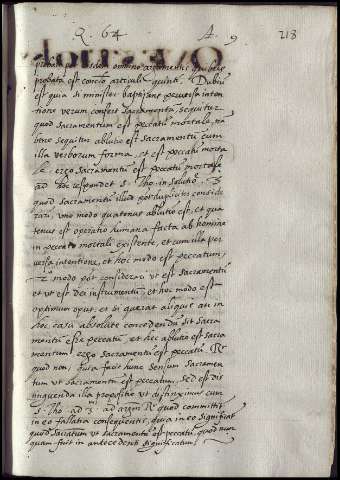 Q. 64 A. 9 218
probata est conclusio articuli quinti. Dubiũ
est quia si minister baptizans peruersa inten
tione verum confert sacramentũ, sequitur
quod sacramentum est peccatũ mortale, na
bene sequitur ablutio est sacramentũ cum
illa verborum forma, et est peccatũ morta
le, ergo sacramentũ est peccatũ mortale
ad hoc respondet s. Tho. in solutio. 3
quod sacramentũ illud pot dupliciter conside
rari, vno modo quatenus ablutio est, et qua
tenus est operatio humana facta ab homine
in peccato mortali existente, et cum illa per
uersa intentione, et hoc modo est peccatum,
2º modo pot considerari vt est sacramentũ
et vt est dei instrumentũ et hoc modo est
optimum opus, et si querat aliquis an in
hoc casu absolute concedendũ sit sacra
mentũ esse peccatũ, et hec ablutio est sacra
mentum, ergo sacramentum est peccatũ Rr
quod non, facit hunc sensum sacramen
tum vt sacramentum est peccatum, sed est dis
tinguenda illa propositio vt distinximus cum
s. Tho. ad 3m ad argm Rr quod committit
in eo fallatia consequentis, quia in eo significat
quod sacratum vt sacramentũ est peccatũ, quod num
quam fuit in antecedenti significatum